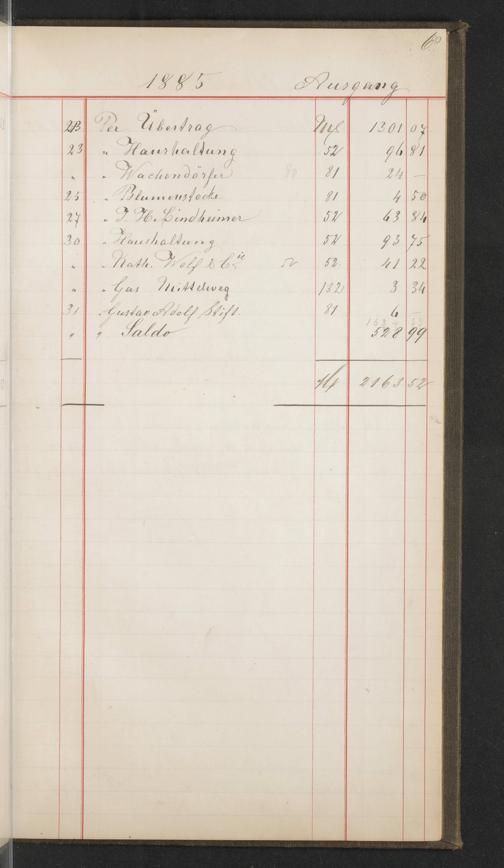 6
1885 Ausgang
23 Per Übertrag M 1301 07
23 " Haushaltung 52 96 81
" " Wachendörfer 81 24 —
25 " Blumenstöcke 81 4 50
27 " J. H. Lindheimer 52 63 84
30 " Haushaltung 52 93 75
" " Math. Wolf & Cie 52 41 22
" " Gas Mittelweg 132 3 34
31 " Gustav Adolf Stift. 81 6
" " Saldo 528 99
M 2163 52